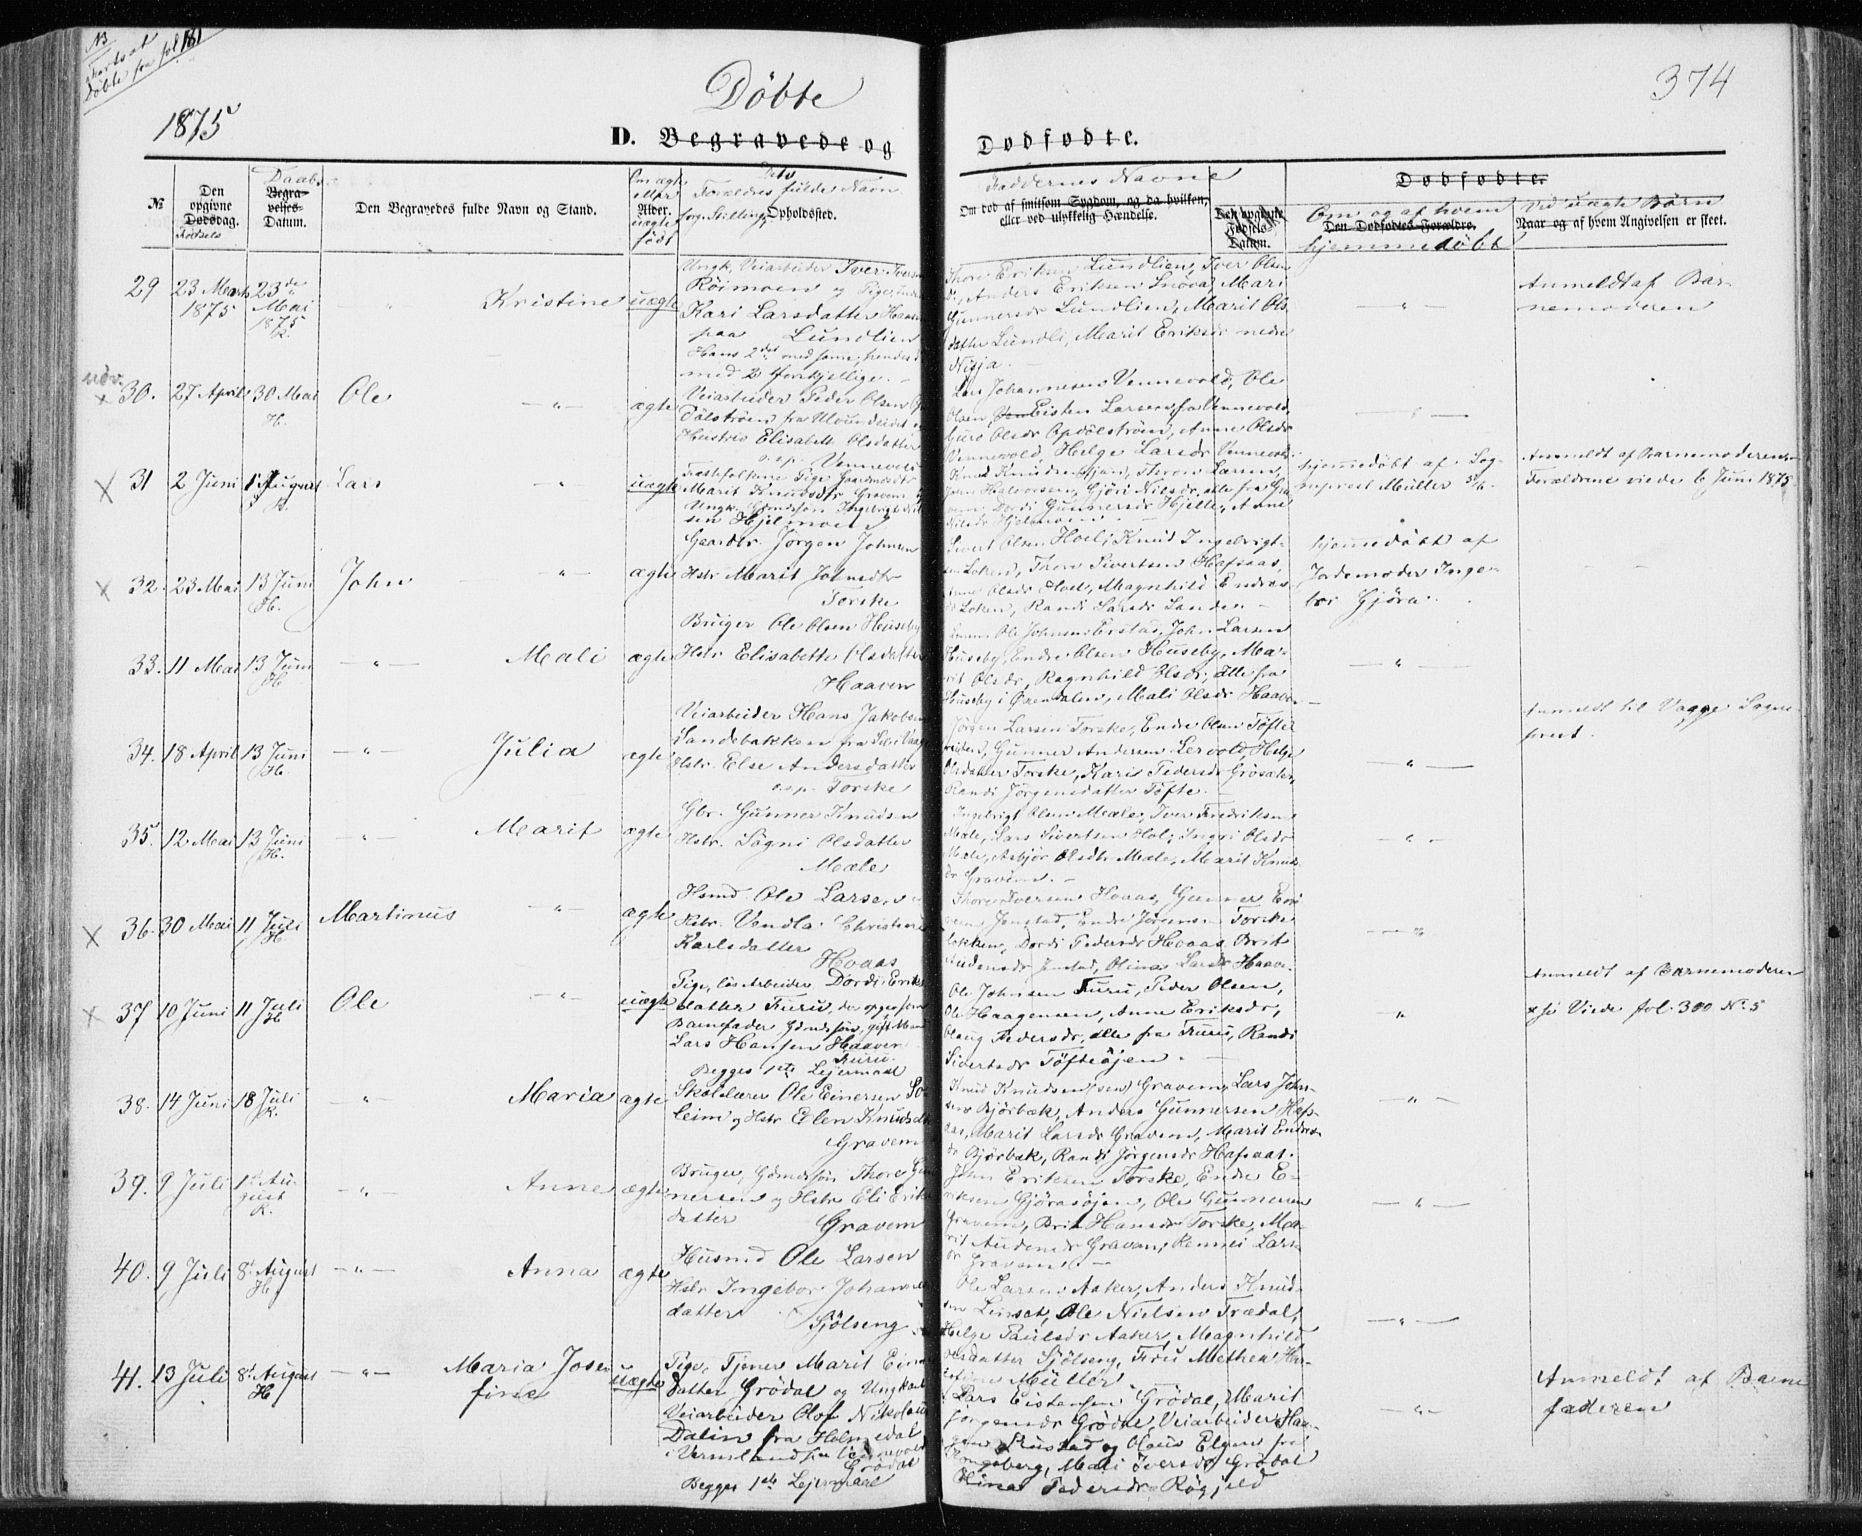 NB
Fortsat
Døbte fra fol 181
1875
Döbte
374
D. Begravede og Dødfødte.
№
Den opgivne Dødsdag.
Fødsels
Daabs-
Begravelses-Datum.
Den Begravedes fulde Navn og Stand.
Om ægte eller uægte født
Alder.
Dets Forældres fulde Navn og Stilling, Opholdssted.
Faddernes Navne
Om død af smitsom Sygdom, og da hvilken, eller ved ulykkelig Hændelse.
Den opgivne Fødsels-Datum.
Dødfødte.
Om og af hvem hjemmedöbt
Den Dødfødtes Forældre.
Ved uægte Börn
Naar og af hvem Angivelsen er skeet.
29 23 Marts 1875 23de Mai 1875 K. " Kristine uægte
Ungk. Veiarbeider Iver Iversen
Röimoen og Pige
Kari Larsdatter
paa Lundlien
Hans 2det med samme, hendes
med 2 forskjellige.
Thore Eriksen Lundlien, Iver Olsen
Anders Eriksen Snöva, Mari
Gunnersdr Lundlien, Marit Ols-
datter Lundli, Marit Eriksdr nedre
Nisja.
-"-
Anmeldt af Bar-
nemoderen
udv.
x 30. 27 April 30 Mai H. Ole -"- ægte
Veiarbeider Peder Olsen
Dölström fra
Hustru Elisabeth Olsdatter
o.s.p. Vennevold
Lars Johannesen Vennevold, Ole
Olsen, Eisten Larsen, fra Vennevold
Guro Olsdr Opdölström, Anne Olsdr
Vennevold, Helge Larsdr Vennevold
-"-
x 31 2 Juni 1 August K. Lars -"- uægte
Fæstefolkene Pige Gaardmdtr
Marit Knudsdtr Gravem
Ungk. Gdmdssön Ingebrigt
sen Hjelmoen
Knud Knudsen, Steron Larsen,
John Halvorsen, Gjöri Nilsdr, alle fra
Dordi Gunnersdr Hjelle, Anne
Nilsdr Hjelmoen
hjemmedöbt af Sog-
neprest Müller
Anmeldt af Barnemoderen
Forældrene viede 6 Juni 1875
x 32. 23 Mai 13 Juni H. John -"- ægte
Gaardbr Jörgen Johnsen
Hstr Marit Johnsdtr
Torske
Sivert Olsen Hoel, Knud Ingebrigt-
sen Löken, Thore Sivertsen Hafsaas,
Anne Olsdr Hoel, Magnhild Endres-
dr Löken, Randi Larsdr Sande.
hjemmedöbt af
Jordemoder Inge-
bor Gjöra.
33. 11 Mai 13 Juni H -"- Mali ægte
Bruger Ole Olsen Huseby
Hstr Elisabeth Olsdatter
Haaven
Ole Johnsen Erstad, John Larsen
Huseby, Endre Olsen Huseby, Ma-
rit Olsdr, Ragnhild Olsdr, alle fra
Huseby i Öxendalen, Mali Olsdr Haaven
-"-
34. 18 April 13 Juni H -"- Julia ægte
Veiarbeider Hans Jakobsen
Sandebakken fra
Hstr. Else Andersdatter
o.s.p. Torske
Jörgen Larsen Torske, Endre Olsen Töfte
Gunner Andersen Lervold, Helge
Olsdatter Torske, Kari Pedersdr Grösæter,
Randi Jörgensdatter Töfte.
-"-
Anmeldt til Vaage Sogne-
prest.
35. 12 Mai 13 Juni H. -"- Marit ægte
Gbr. Gunner Knudsen
Hstr. Sögni Olsdatter
Mæle
Ingebrigt Olsen Mæle, Iver Fredriksen
Mæle, Lars Sivertsen Hol, Ingri Olsdr
Mæle, Asbjör Olsdtr Mæle, Marit Knuds-
dr Gravem.
-"-
x 36. 30 Mai 11 Juli H. Martinus -"- ægte
Hsmd Ole Larsen
Hstr. Vendla Christine
Karlsdatter
Hoaas
Thore Iversen Hoaas, Gunner Eri-
Jenstad, Endre Jörgensen Torske-
lökken, Dordi Pedersdr Hoaas, Brit
Audensdr Jenstad, Olina Larsdr Haave.
-"-
x 37 10 Juni 11 Juli H Ole -"- uægte
Pige, lös Arbeider Dordi Eriks-
datter Furu, der opgiv som
Barnefader Gdmdssön, gift Mand
Lars Hansen Haaven
Furu.
Begges 1ste Leiermaal
Ole Johnsen Furu, Peder Olsen,
Ole Haagensen, Anne Eriksdr,
Olaug Pedersdr, alle fra Furu, Randi
Sivertsdr Töfteöjen.
"
Anmeldt af Barnemoderen
x se Viede fol. 300 No 5
38. 14 Juni 18 Juli K. -"- Maria ægte
Skolelærer Ole Einersen So-
leim og Hstr Elen Knudsdtr
Gravem
Knud Knudsen (sen) Gravem, Lars John-
sen Björbæk, Anders Gunnersen Hafs-
aas, Marit Larsdr Gravem, Marit Endres-
dr Björbæk, Randi Jörgensdr Hafsaas.
-"-
39. 9 Juli 1st August K. -"- Anne ægte
Bruger, Gdmdssön Thore Gun-
nersen og Hstr Eli Eriks-
datter Gravem
John Eriksen Torske, Endre E-
riksen Gjörasöjen, Ole Gunnersen
Gravem, Brit Hansdr Torske, Ma-
rit Audensdr Gravem, Rennei Lars-
dr Gravem.
-"-
40. 9 Juli 8 August H -"- Anna ægte
Husmd Ole Larsen
Hstr Ingebor Johannes-
datter Sjölseng
Ole Larsen Aaker, Anders Knud-
sen Linset, Ole Nielsen Trædal,
Helge Paulsdr Aaker, Magnhild
Olsdatter Sjölseng, Fru Methea
Müller
-"-
41. 13 Juli 8 August H -"- Maria Jose-
fine uægte
Pige, Tjener Marit Einers-
datter Grödal og Ungkarl
Veiarbeider Olof Nikolaus
Dalin fra Holmedal
i Vermland
Grödal
Begges 1ste Leiermaal
Lars Eistensen Grödal, Marit
Jörgensdr Grödal, Veiarbeider Haa-
gen og Olaus Elgen fra
Kongsberg, Mali Iversdr Grödal
Olina Pedersdr Rögjeld
-"-
Anmeldt af Barne
faderen